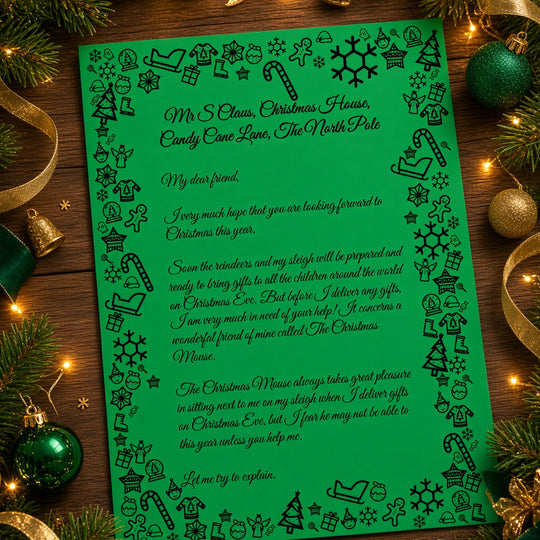 Mr S Claus, Christmas House,
Candy Cane Lane, The North Pole
My dear friend,
I very much hope that you are looking forward to
Christmas this year.
Soon the reindeers and my sleigh will be prepared and
ready to bring gifts to all the children around the world
on Christmas Eve. But before I deliver any gifts,
I am very much in need of your help! It concerns a
wonderful friend of mine called The Christmas
Mouse.
The Christmas Mouse always takes great pleasure
in sitting next to me on my sleigh when I deliver gifts
on Christmas Eve, but I fear he may not be able to
this year unless you help me.
Let me try to explain.